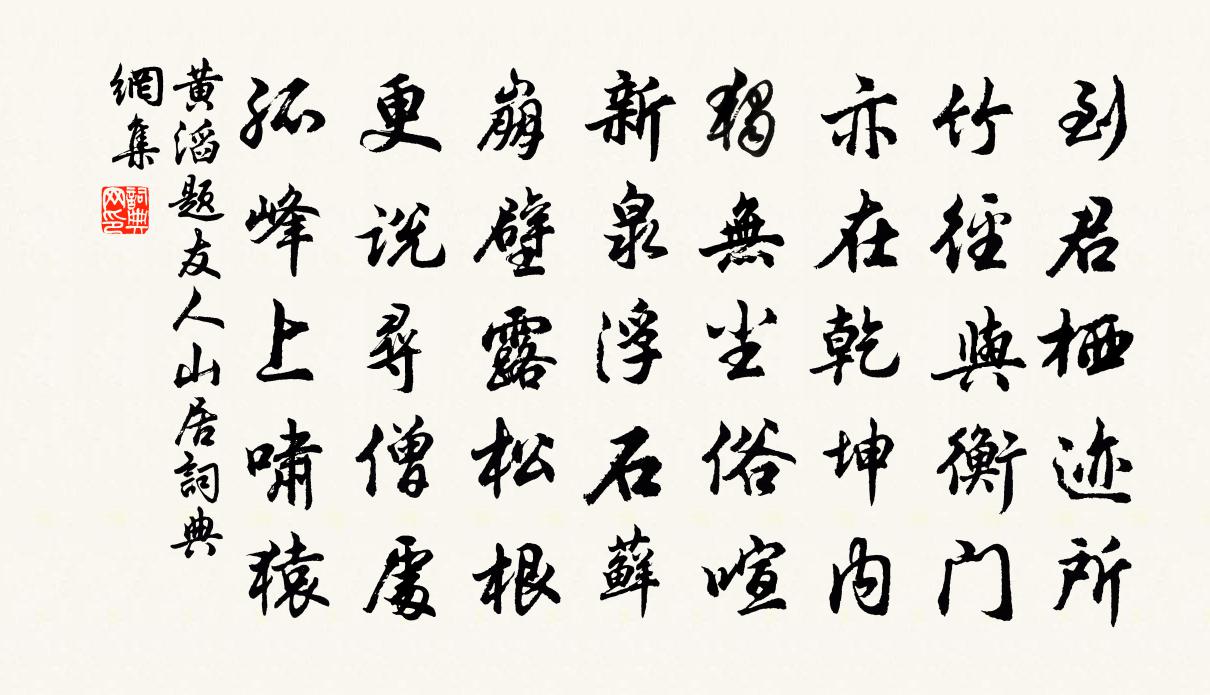 到君栖迹所
竹徑與衡门
亦在乾坤内
獨無尘俗喧
新泉浮石蘚
崩壁露松根
更说尋僧處
孤峰上嘯猿
黄滔题友人山居詞典
網集
詞典
网印